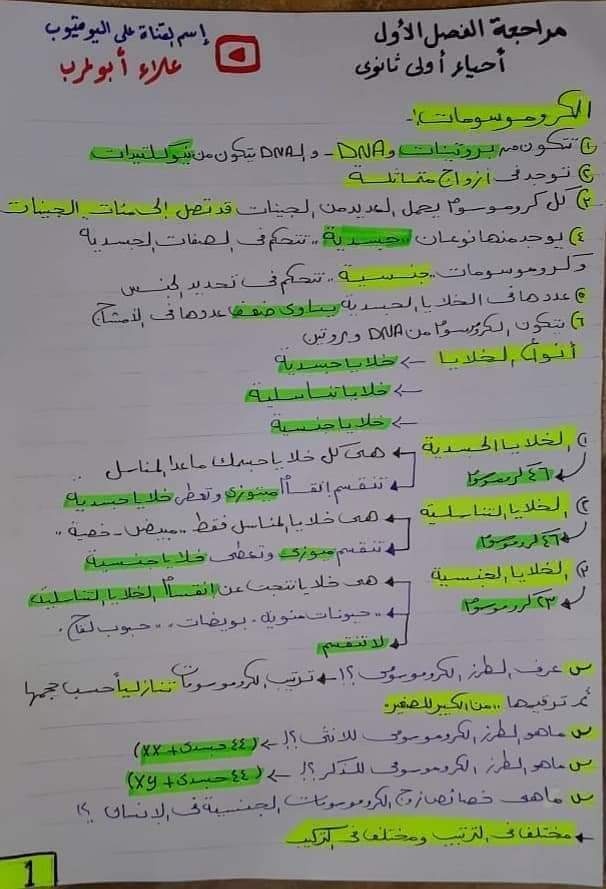 مراجعة الفصل الأول
إسم القناة على اليوتيوب
أحياء أولى ثانوى
علاء أبو لمرب
الكروموسومات:-
① تتكون من بروتينات و DNA - والـ DNA يتكون من نيوكلتيدات
② توجد فى أزواج متماثلة
③ كل كروموسوم يحمل العديد من الجينات قد تصل إلى مئات الجينات
④ يوجد منها نوعان "جسدية" تتحكم فى الصفات الجسدية
وكروموسومات "جنسية" تتحكم فى تحديد الجنس
⑤ عددها فى الخلايا الجسدية يساوى ضعف عددها فى الأمشاج
⑥ يتكون الكروموسوم من DNA وبروتين
أنواع الخلايا ← خلايا جسدية
← خلايا تناسلية
← خلايا جنسية
① الخلايا الجسدية ← هى كل خلايا جسمك ماعدا المناسل
٤٦ كروموسوم ← تنقسم إنقسام ميتوزى وتعطى خلايا جسدية
② الخلايا التناسلية ← هى خلايا المناسل فقط "مبيض - خصية"
٤٦ كروموسوم ← تنقسم ميوزى وتعطى خلايا جنسية
③ الخلايا الجنسية ← هى خلايا نتجت عن إنقسام الخلايا التناسلية
٢٣ كروموسوم ← "حيوانات منوية، بويضات، حبوب لقاح"
لا تنقسم
س عرف الطرز الكروموسومى ؟! ← ترتيب الكروموسومات تنازلياً حسب حجمها
ثم ترقيمها "من الكبير للصغير"
س ماهو الطرز الكروموسومى للانثى ؟! ← (٤٤ جسدى + xx)
س ماهو الطرز الكروموسومى للذكر ؟! ← (٤٤ جسدى + xy)
س ماهى خصائص زوج الكروموسومات الجنسية فى الإنسان ؟!
← مختلف فى الترتيب ومختلف فى التركيب
1